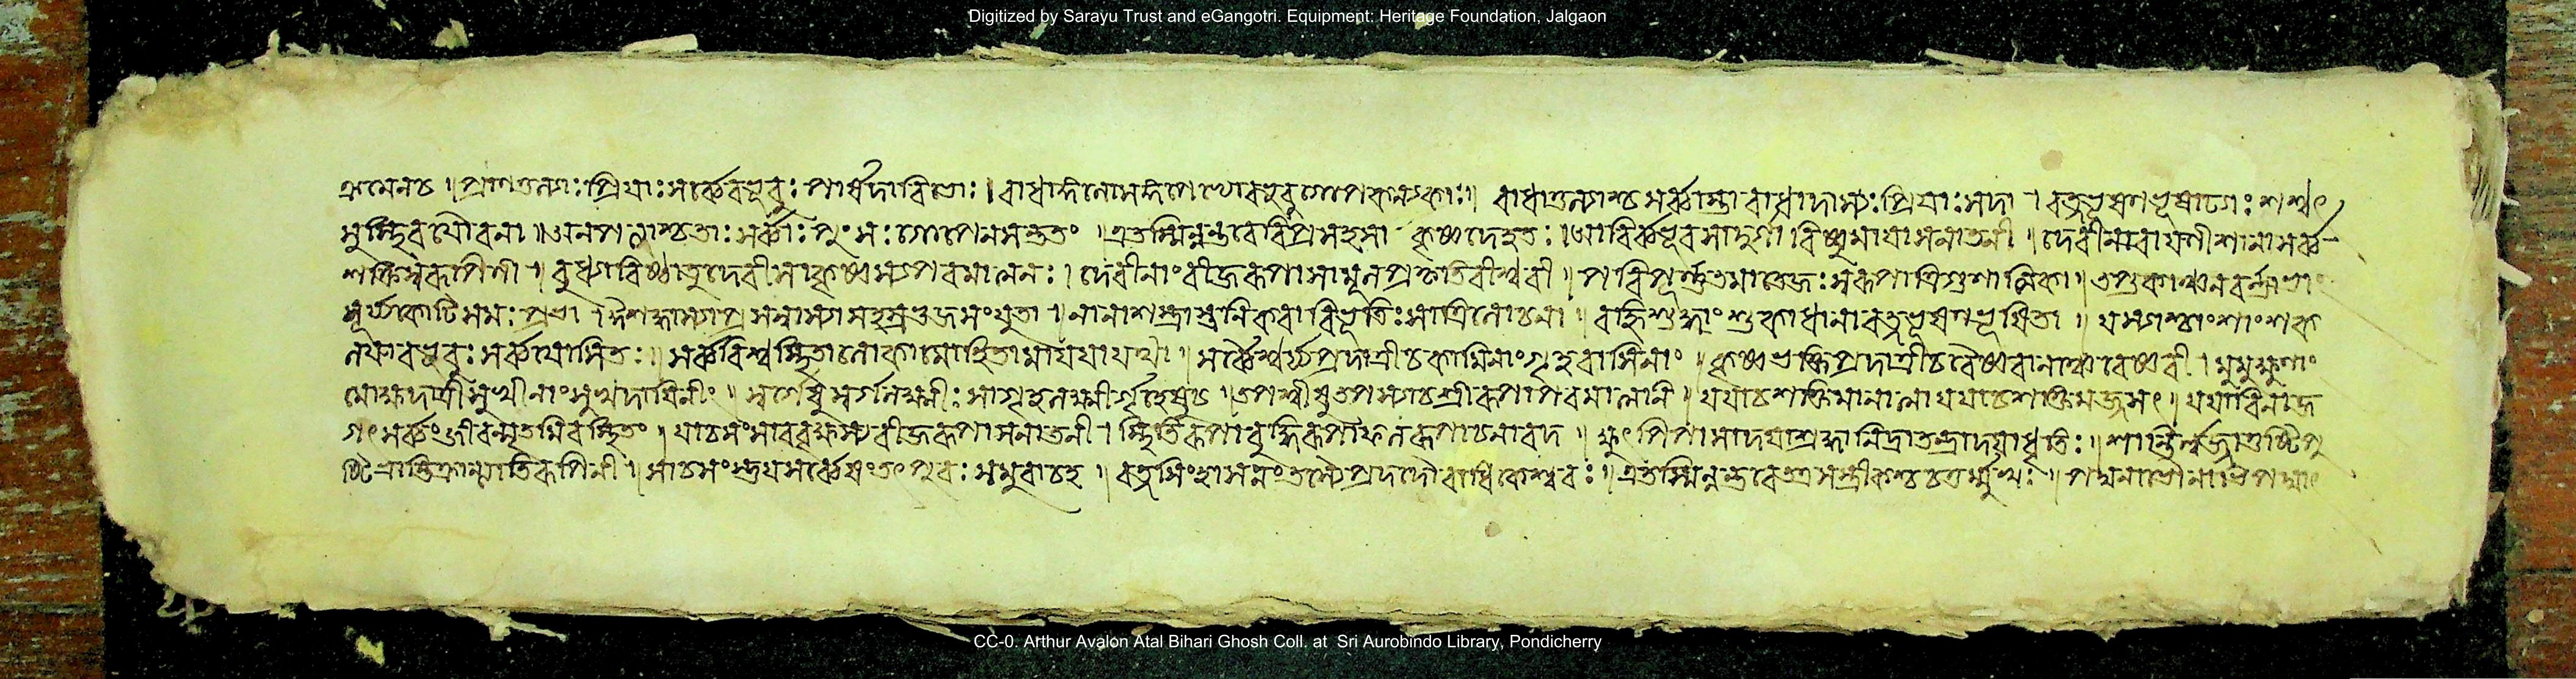 Digitized by Sarayu Trust and eGangotri. Equipment: Heritage Foundation, Jalgaon
প্রিয়াঃ সর্ব্বে বভূবুঃ পার্ষদা বিভোঃ । রাধাতুল্যাশ্চ সর্ব্বাস্তা রাধাদাস্যঃ প্রিয়াঃ সদা । রত্নভূষণভূষাঢ্যাঃ শশ্বৎ
সুস্থিরযৌবনা ॥ অনপত্যাশ্চ তাঃ সর্ব্বাঃ পুংসঃ শাপেন সন্ততং । এতস্মিন্নন্তরে বিপ্র সহসা কৃষ্ণদেহতঃ । আবির্ব্বভূব সা দুর্গা বিষ্ণুমায়া সনাতনী । দেবী নারায়ণীশানা সর্ব্ব
শক্তিস্বরূপিণী । বুদ্ধ্যধিষ্ঠাতৃদেবী সা কৃষ্ণস্য পরমাত্মনঃ । দেবীনাং বীজরূপা সা মূলপ্রকৃতিরীশ্বরী । পরিপূর্ণতমা তেজঃস্বরূপা ত্রিগুণাত্মিকা । তপ্তকাঞ্চনবর্ণাভা
সূর্য্যকোটিসমঃপ্রভা । ঈষদ্ধাস্যপ্রসন্নাস্যা সহস্রভুজসংযুতা । নানাশস্ত্রাস্ত্রনিকরা বিভূতিঃ সা ত্রিলোচনা । বহ্নিশুদ্ধাংশুকাধানা রত্নভূষণভূষিতা । যস্যাশ্চাংশাংশক
লয়া বভূবুঃ সর্ব্বযোষিতঃ । সর্ব্ববিশ্বস্থিতা লোকা মোহিতা মায়য়া যয়া । সর্ব্বৈশ্বর্য্যপ্রদাত্রী চ কামিনাং গৃহবাসিনাং । কৃষ্ণভক্তিপ্রদাত্রী চ বৈষ্ণবানাঞ্চ বৈষ্ণবী । মুমুক্ষূণাং
মোক্ষদাত্রী সুখীনাং সুখদায়িনীং । স্বর্গেষু স্বর্গলক্ষ্মীঃ সা গৃহলক্ষ্মীর্গৃহেষু চ । তপস্বীষু তপস্যা চ শ্রীরূপা পরমাত্মনি । যয়া চ শক্তিমানাত্মা যয়া চ শক্তিমজ্জগৎ । যয়া বিনা জ
গৎ সর্ব্বং জীবন্মৃতমিব স্থিতং । যা চ সংসারবৃক্ষস্য বীজরূপা সনাতনী । স্থিতিরূপা বুদ্ধিরূপা ফলরূপা চ নারদ । ক্ষুৎপিপাসা দয়া শ্রদ্ধা নিদ্রা তন্দ্রা ধৃতিঃ । শান্তির্লজ্জা তুষ্টিপু
ষ্টিভ্রান্তিকান্ত্যাতিরূপিণী । সা চ প্রভুং পুরঃ সমুবাচ হ । রত্নসিংহাসনং তস্যৈ প্রদদৌ রাধিকেশ্বরঃ । এতস্মিন্নন্তরে তত্র সস্ত্রীকশ্চ চতুর্ম্মুখঃ ।
CC-0. Arthur Avalon Atal Bihari Ghosh Coll. at Sri Aurobindo Library, Pondicherry